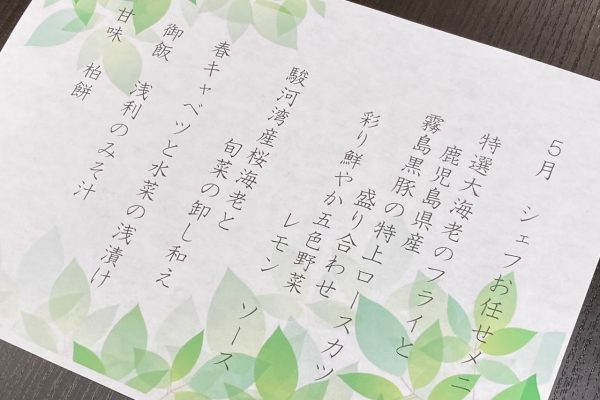 5月 シェフお任せメニ
特選大海老のフライと
鹿児島県産
霧島黒豚の特上ロースカツ
盛り合わせ
彩り鮮やか五色野菜
レモン ソース
駿河湾産桜海老と
旬菜の卸し和え
春キャベツと水菜の浅漬け
御飯 浅利のみそ汁
甘味 柏餅